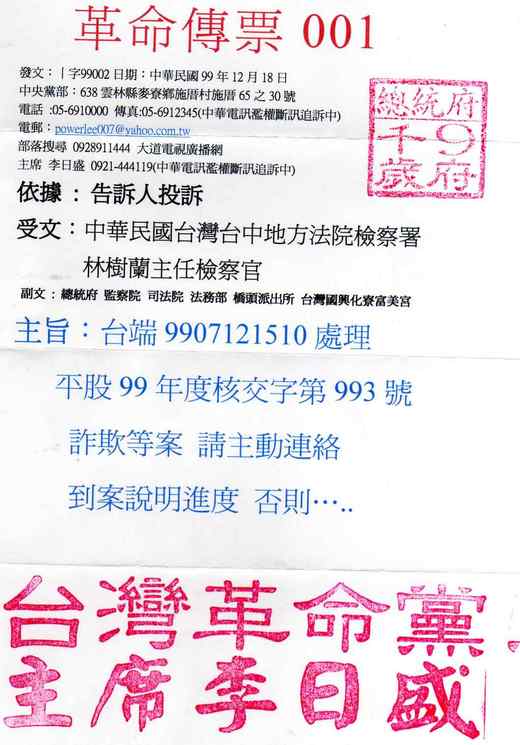 革命傳票 001
發文：丨字99002 日期：中華民國 99 年 12 月 18 日
中央黨部：638 雲林縣麥寮鄉施厝村施厝 65 之 30 號
電話 :05-6910000 傳真:05-6912345(中華電訊濫權斷訊追訴中)
電郵：powerlee007@yahoo.com.tw
部落搜尋 0928911444 大道電視廣播網
主席 李日盛 0921-444119(中華電訊濫權斷訊追訴中)
總統府
千9
歲府
依據：告訴人投訴
受文：中華民國台灣台中地方法院檢察署
林樹蘭主任檢察官
副文：總統府 監察院 司法院 法務部 橋頭派出所 台灣國興化寮富美宮
主旨：台端 9907121510 處理
平股 99 年度核交字第 993 號
詐欺等案 請主動連絡
到案說明進度 否則…..
台灣革命黨
主席李日盛